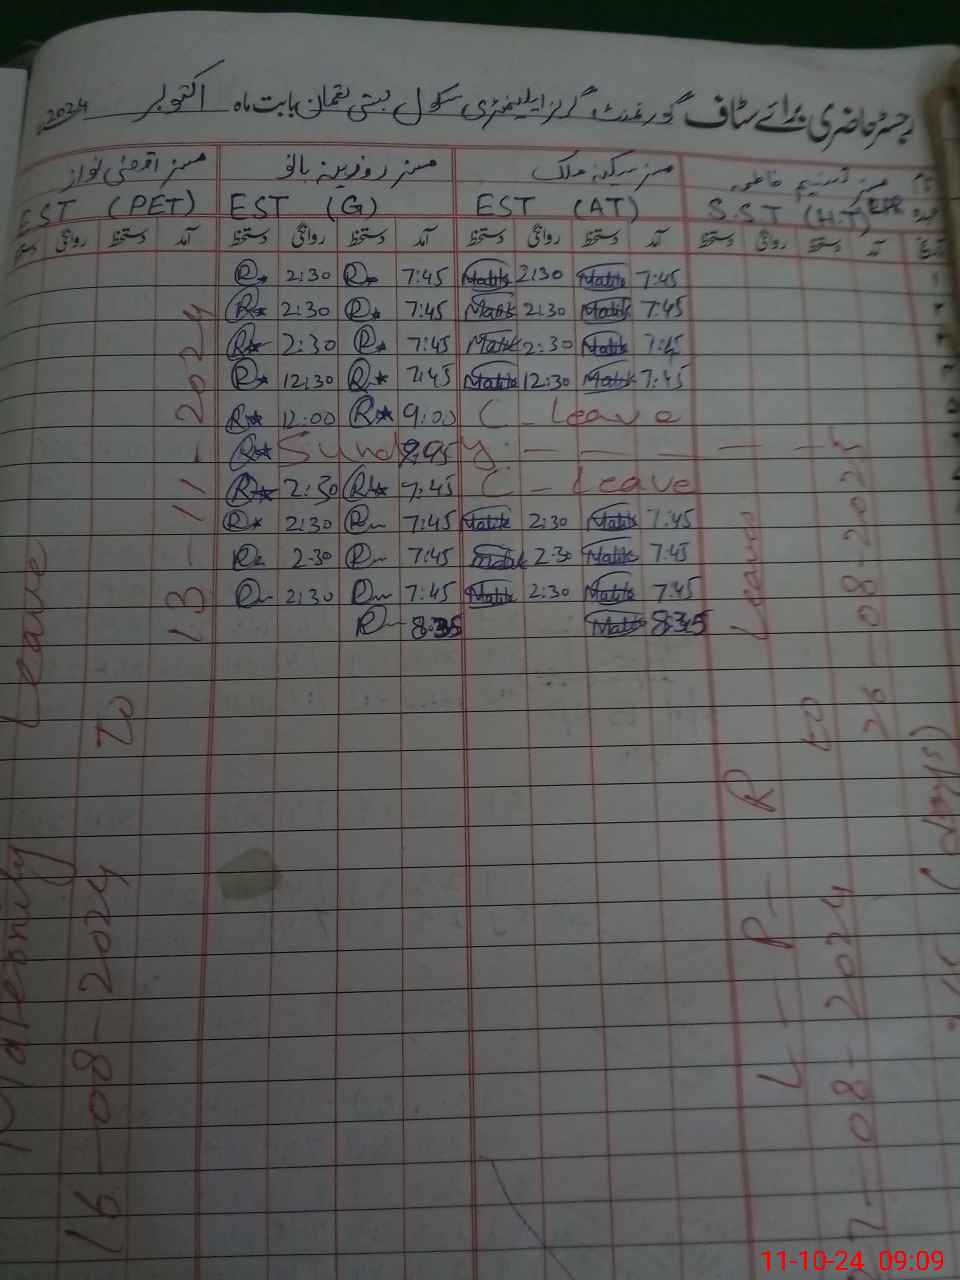 رجسٹر حاضری برائے سٹاف گورنمنٹ گرلز ایلیمنٹری سکول بستی لقمان بابت ماہ اکتوبر 2024
نام مسز تسنیم فاطمہ مسز سکینہ ملک مسز روزینہ بانو مسز نواز
عہدہ S.ST (H.T) EST (AT) EST (G) EST (PET)
تاریخ آمد دستخط روانگی دستخط آمد دستخط روانگی دستخط آمد دستخط روانگی دستخط آمد دستخط روانگی دستخط
R 2:30 R 7:45 Malik 2:30 Malik 7:45
R 2:30 R 7:45 Malik 2:30 Malik 7:45
R 2:30 R 7:45 Malik 2:30 Malik 7:45
R 12:30 R 7:45 Malik 12:30 Malik 7:45
R 12:00 R 9:00 C - Leave
R Sunday
R 2:30 R 7:45 C - Leave
R 2:30 R 7:45 Malik 2:30 Malik 7:45
R 2:30 R 7:45 Malik 2:30 Malik 7:45
R 2:30 R 7:45 Malik 2:30 Malik 7:45
R 8:35 Malik 8:35
Leave
16-08-2024 To 13-11-2024
L-P-R Leave
7-08-2024 to 26-08-2025
(days)
11-10-24 09:09